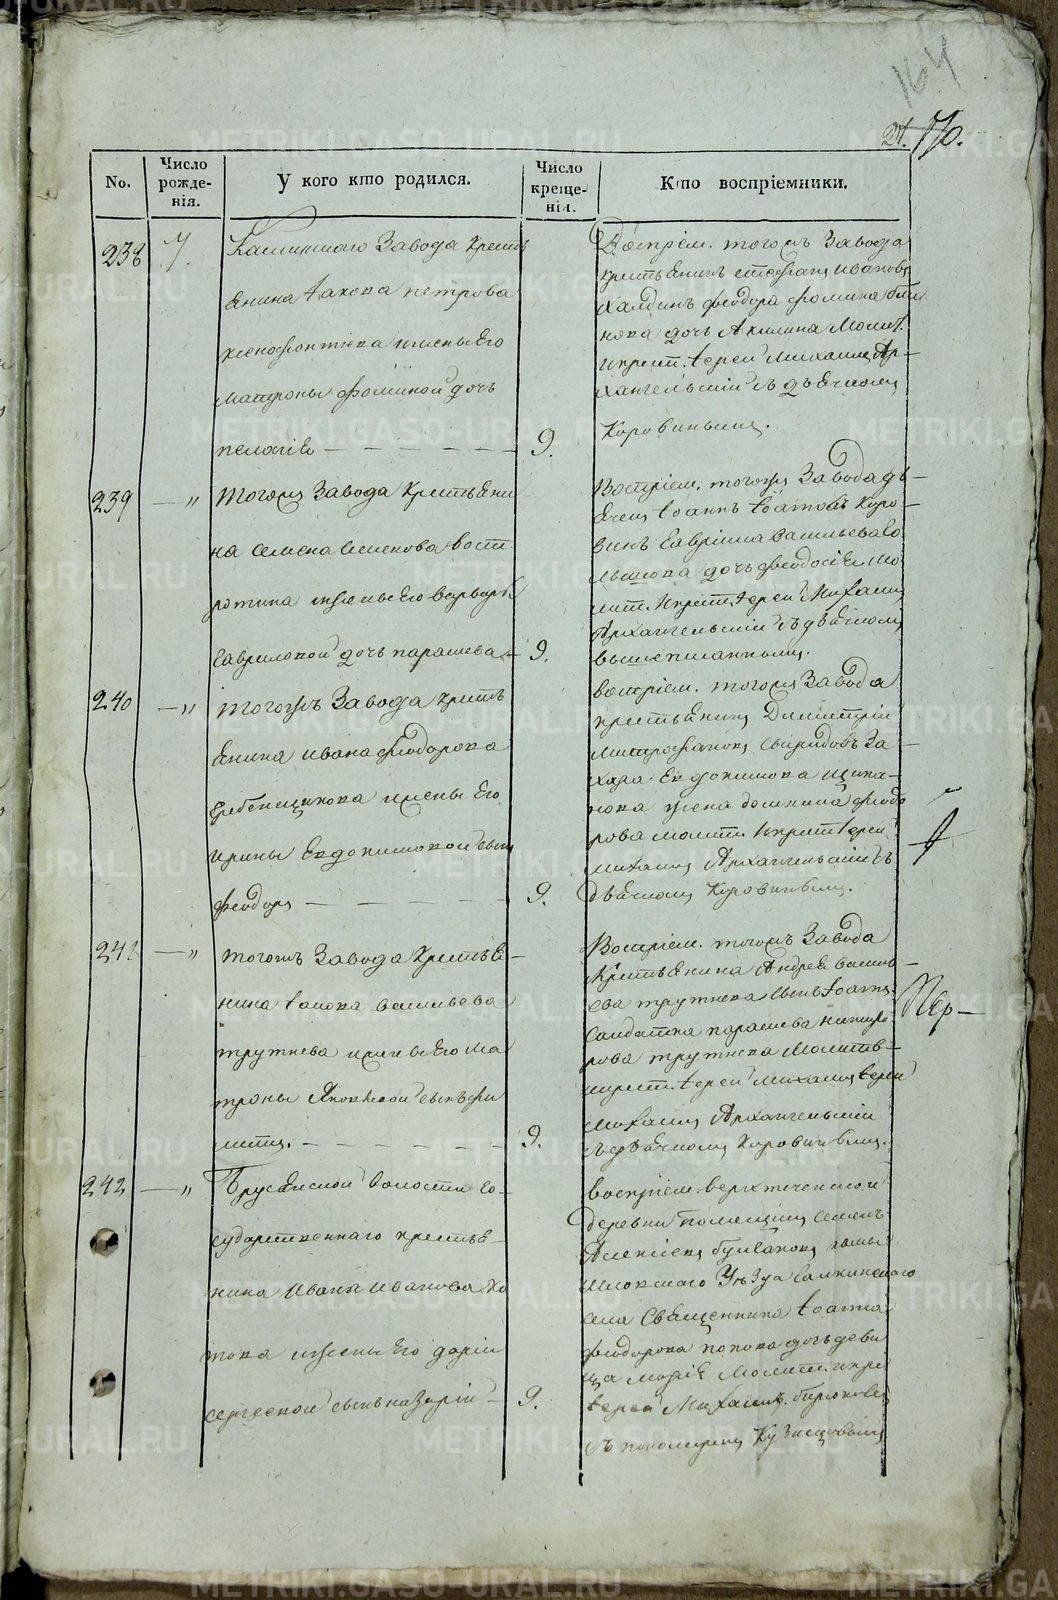 164
24. 170.
No.
Число рожде- нія.
У кого кто родился.
Число креще- нія.
Кто воспріемники.
238
7.
Каслинскаго Завода Кресть
янина Іакова петрова
ксенофонтова и жены Его
матроны фоминой дочь
пелагія
9.
Воспріем. того жъ Завода
крестьянинъ стефанъ Ивановъ
Халдинъ феодора фомина
нова дочь Акилина Молит.
и крест. Іерей Михаилъ Ар-
хангельскій съ дьячкомъ
Коровинымъ.
239
—"
тогожъ Завода Крестьяни
на семена Семенова вост
ротина и жены Его варвары
Гавриловой дочь парасковa
9.
Воспріем. тогожъ Завода дь-
ячекъ Іоаннъ Іоанновъ Коро-
винъ Гавріила Васильева
дочь феодосія Мо
лит. и крест. Іерей Михаилъ
Архангельскій съ дьячкомъ
вышеписаннымъ.
240
—"
тогожъ Завода кресть
янина Ивана феодорова
Гребенщикова и жены Его
Ирины Евдокимовой сынъ
феодоръ
9.
воспріем. тогожъ Завода
крестьянинъ Димитрій
Митрофановъ Свиридовъ За
хара Евдокимова
нова жена домнина феодо
рова молит. и крест Іерей
Михаилъ Архангельскій съ
дьячкомъ Коровинымъ.
241
—"
тогожъ Завода Крестья-
нина Іакова васильева
трутнева и жены Его Ма
троны Яковлевой сынъ фи
липпъ.
9.
Воспріем. тогожъ Завода
Крестьянина Андрея васил-
ева трутнева сынъ Іоаннъ
Солдатка парасковa
рова трутнева Молитв-
и крест. Іерей Михаилъ Іерей
Михаилъ Архангельскій
съ дьячкомъ Коровинымъ.
242
—"
Брусянской волости го-
сударственнаго крестья-
нина Ивана Иванова Хо
това и жены Его даріи
сергеевой сынъ назарій
9.
воспріем. верхтеченской
деревни помещикъ Семенъ
Алексіевъ Булгаковъ камы
шловскаго Уѣзда
села Священника Іоанна
феодорова попова дочь деви
ца Марія Молит. и кре
Іерей Михаилъ Бирюковъ
съ пономаремъ Кузнецовымъ